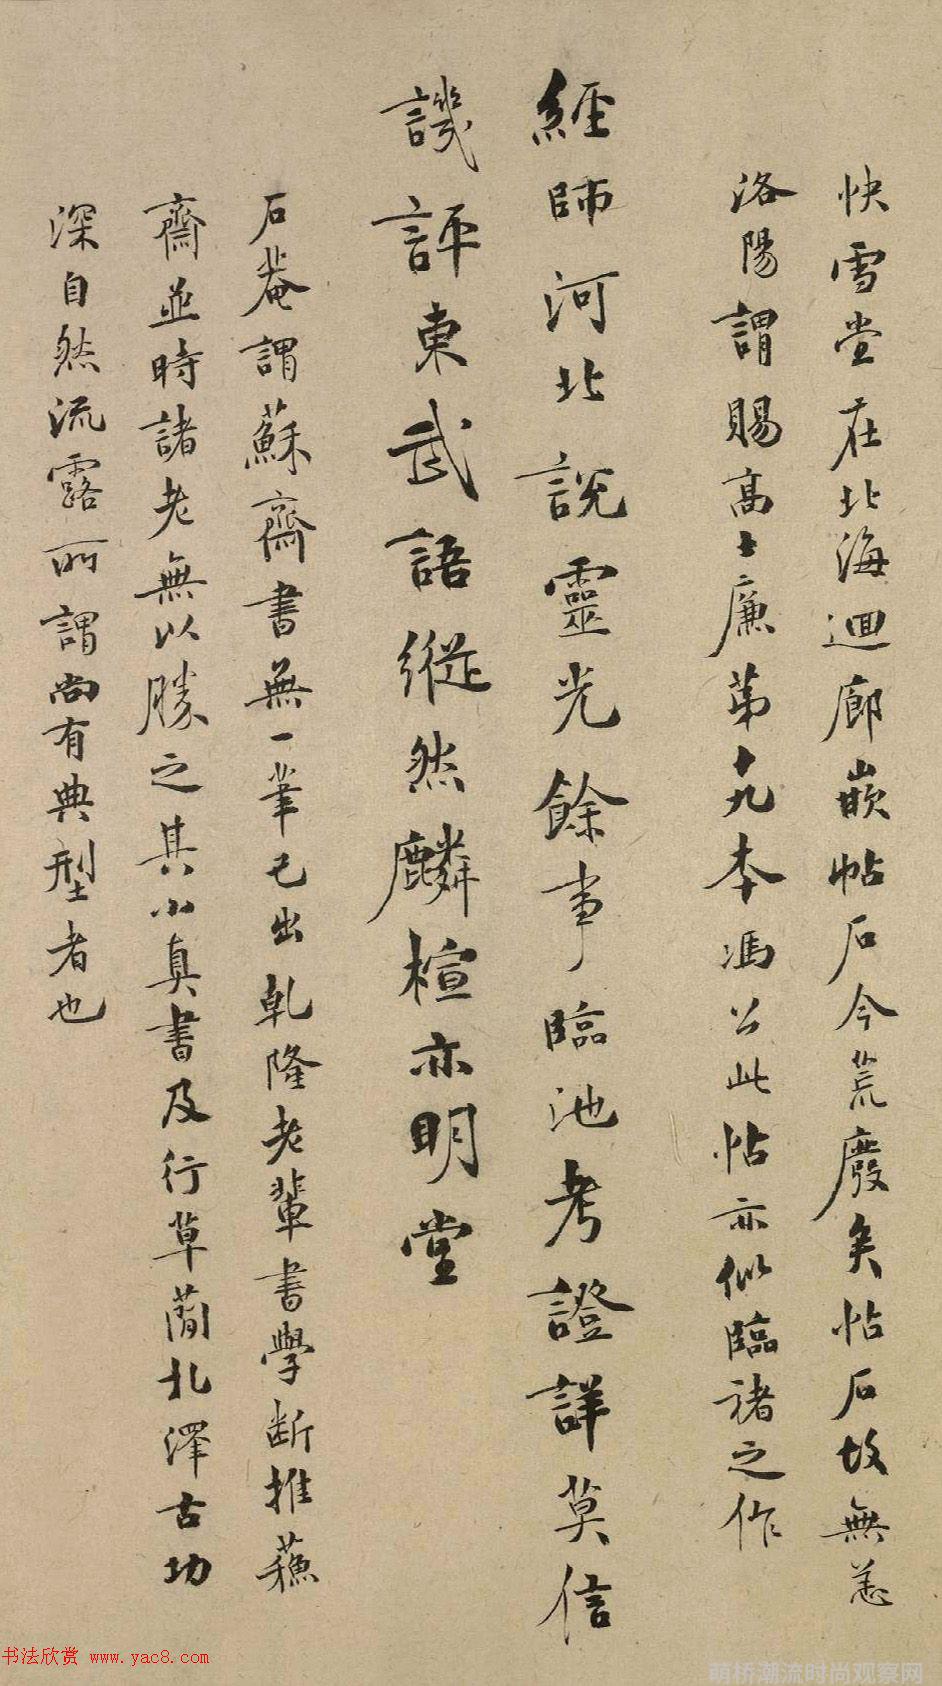 快雪堂在北海迴廊嵌帖石今荒廢矣帖石故無恙
洛陽謂賜高士廉第十九本馮公此帖亦似臨褚之作
經師河北說靈光餘事臨池考證詳莫信
譏評東武語縱然麟楦亦明堂
石菴謂蘇齋書無一筆己出乾隆老輩書學斷推蘇
齋並時諸老無以勝之其小真書及行草蘭北澤古功
深自然流露所謂尚有典型者也
书法欣赏 www.yac8.com
萌桥潮流时尚观察网